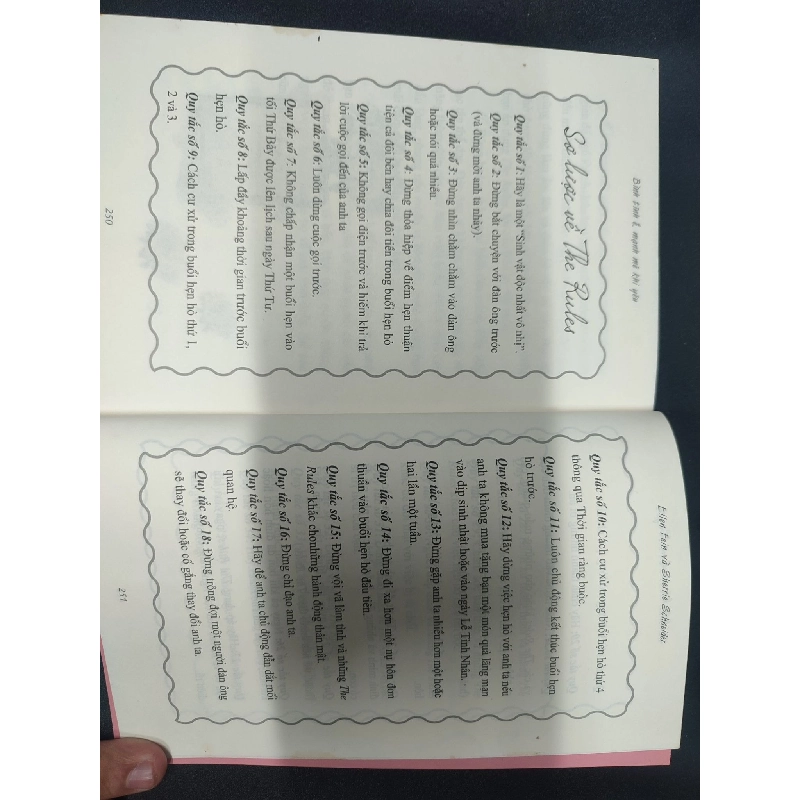 Bình tĩnh & mạnh mẽ khi yêu
Sơ lược về The Rules
Quy tắc số 1: Hãy là một “Sinh vật độc nhất vô nhị”.
Quy tắc số 2: Đừng bắt chuyện với đàn ông trước
(và đừng mời anh ta nhảy).
Quy tắc số 3: Đừng nhìn chằm chằm vào đàn ông
hoặc nói quá nhiều.
Quy tắc số 4: Đừng thỏa hiệp về điểm hẹn thuận
tiện cả đôi bên hay chia đôi tiền trong buổi hẹn hò
Quy tắc số 5: Không gọi điện trước và hiếm khi trả
lời cuộc gọi đến của anh ta
Quy tắc số 6: Luôn dừng cuộc gọi trước.
Quy tắc số 7: Không chấp nhận một buổi hẹn vào
tối Thứ Bảy được lên lịch sau ngày Thứ Tư.
Quy tắc số 8: Lấp đầy khoảng thời gian trước buổi
hẹn hò.
Quy tắc số 9: Cách cư xử trong buổi hẹn hò thứ 1,
2 và 3.
250
Ellen Fein và Sherrie Schneider
Quy tắc số 10: Cách cư xử trong buổi hẹn hò thứ 4
thông qua Thời gian ràng buộc.
Quy tắc số 11: Luôn chủ động kết thúc buổi hẹn
hò trước.
Quy tắc số 12: Hãy dừng việc hẹn hò với anh ta nếu
anh ta không mua tặng bạn một món quà lãng mạn
vào dịp sinh nhật hoặc vào ngày Lễ Tình Nhân.
Quy tắc số 13: Đừng gặp anh ta nhiều hơn một hoặc
hai lần một tuần.
Quy tắc số 14: Đừng đi xa hơn một nụ hôn đơn
thuần vào buổi hẹn hò đầu tiên.
Quy tắc số 15: Đừng vội vã làm tình và những The
Rules khác chonhững hành động thân mật.
Quy tắc số 16: Đừng chỉ đạo anh ta.
Quy tắc số 17: Hãy để anh ta chủ động dẫn dắt mối
quan hệ.
Quy tắc số 18: Đừng trông đợi một người đàn ông
sẽ thay đổi hoặc cố gắng thay đổi anh ta.
251